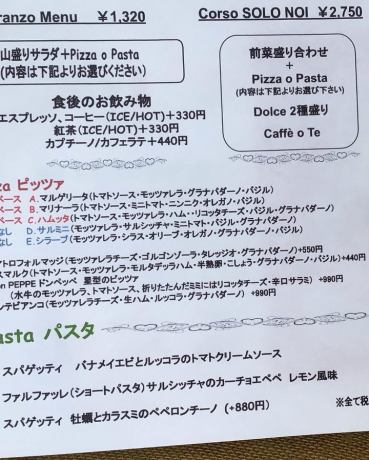 ranzo Menu ￥1,320
Corso SOLO NOI ￥2,750
山盛りサラダ＋Pizza o Pasta
(内容は下記よりお選びください)
前菜盛り合わせ
＋
Pizza o Pasta
(内容は下記よりお選び下さい)
Dolce 2種盛り
Caffè o Te
食後のお飲み物
エスプレッソ、コーヒー(ICE/HOT)＋330円
紅茶(ICE/HOT)＋330円
カプチーノ/カフェラテ＋440円
za ピッツァ
ベース A.マルゲリータ(トマトソース・モッツァレラ・グラナパダーノ・バジル)
ベース B.マリナーラ(トマトソース・ミニトマト・ニンニク・オレガノ・バジル)
ベース C.ハムッタ(トマトソース・モッツァレラ・ハム・リコッタチーズ・バジル・グラナパダーノ)
なし D.サルミニ(モッツァレラ・サルシッチャ・ミニトマト・バジル・グラナパダーノ)
なし E.シラーブ(モッツァレラ・シラス・オリーブ・オレガノ・グラナパダーノ・バジル)
トロフォルマッジ(モッツァレラチーズ・ゴルゴンゾーラ・タレッジオ・グラナパダーノ)+550円
スマルク(トマトソース・モッツァレラ・モルタデッラハム・半熟卵・こしょう・グラナパダーノ・バジル)+440円
on PEPPE ドンペッペ 星型のピッツァ
(水牛のモッツァレラ、トマトソース、折りたたんだミミにはリコッタチーズ・辛口サラミ) +990円
ンテビアンコ(モッツァレラチーズ・生ハム・ルッコラ・グラナパダーノ) +990円
asta パスタ
スパゲッティ バナメイエビとルッコラのトマトクリームソース
ファルファッレ(ショートパスタ)サルシッチャのカーチョエペペ レモン風味
スパゲッティ 牡蠣とカラスミのペペロンチーノ (+880円)
※全て税